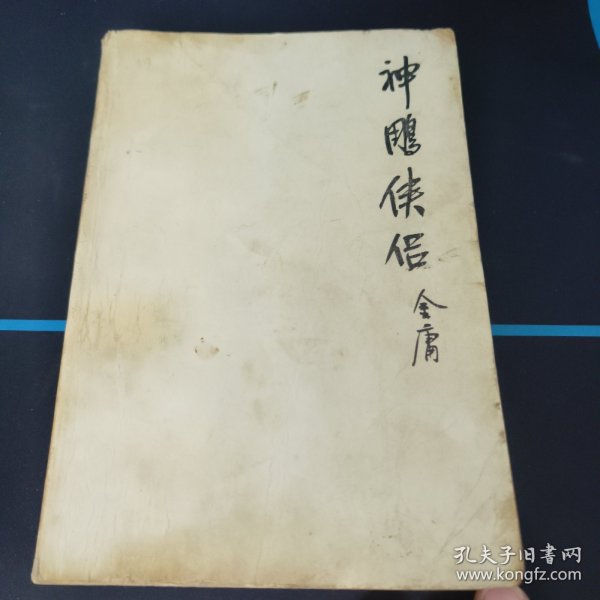 神鵰侠侣
金庸
孔夫子旧书网
www.kongfz.com